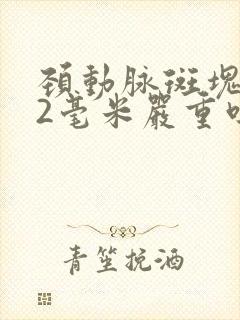 頚動脉斑塊
2毫米嚴重
青笙挽酒